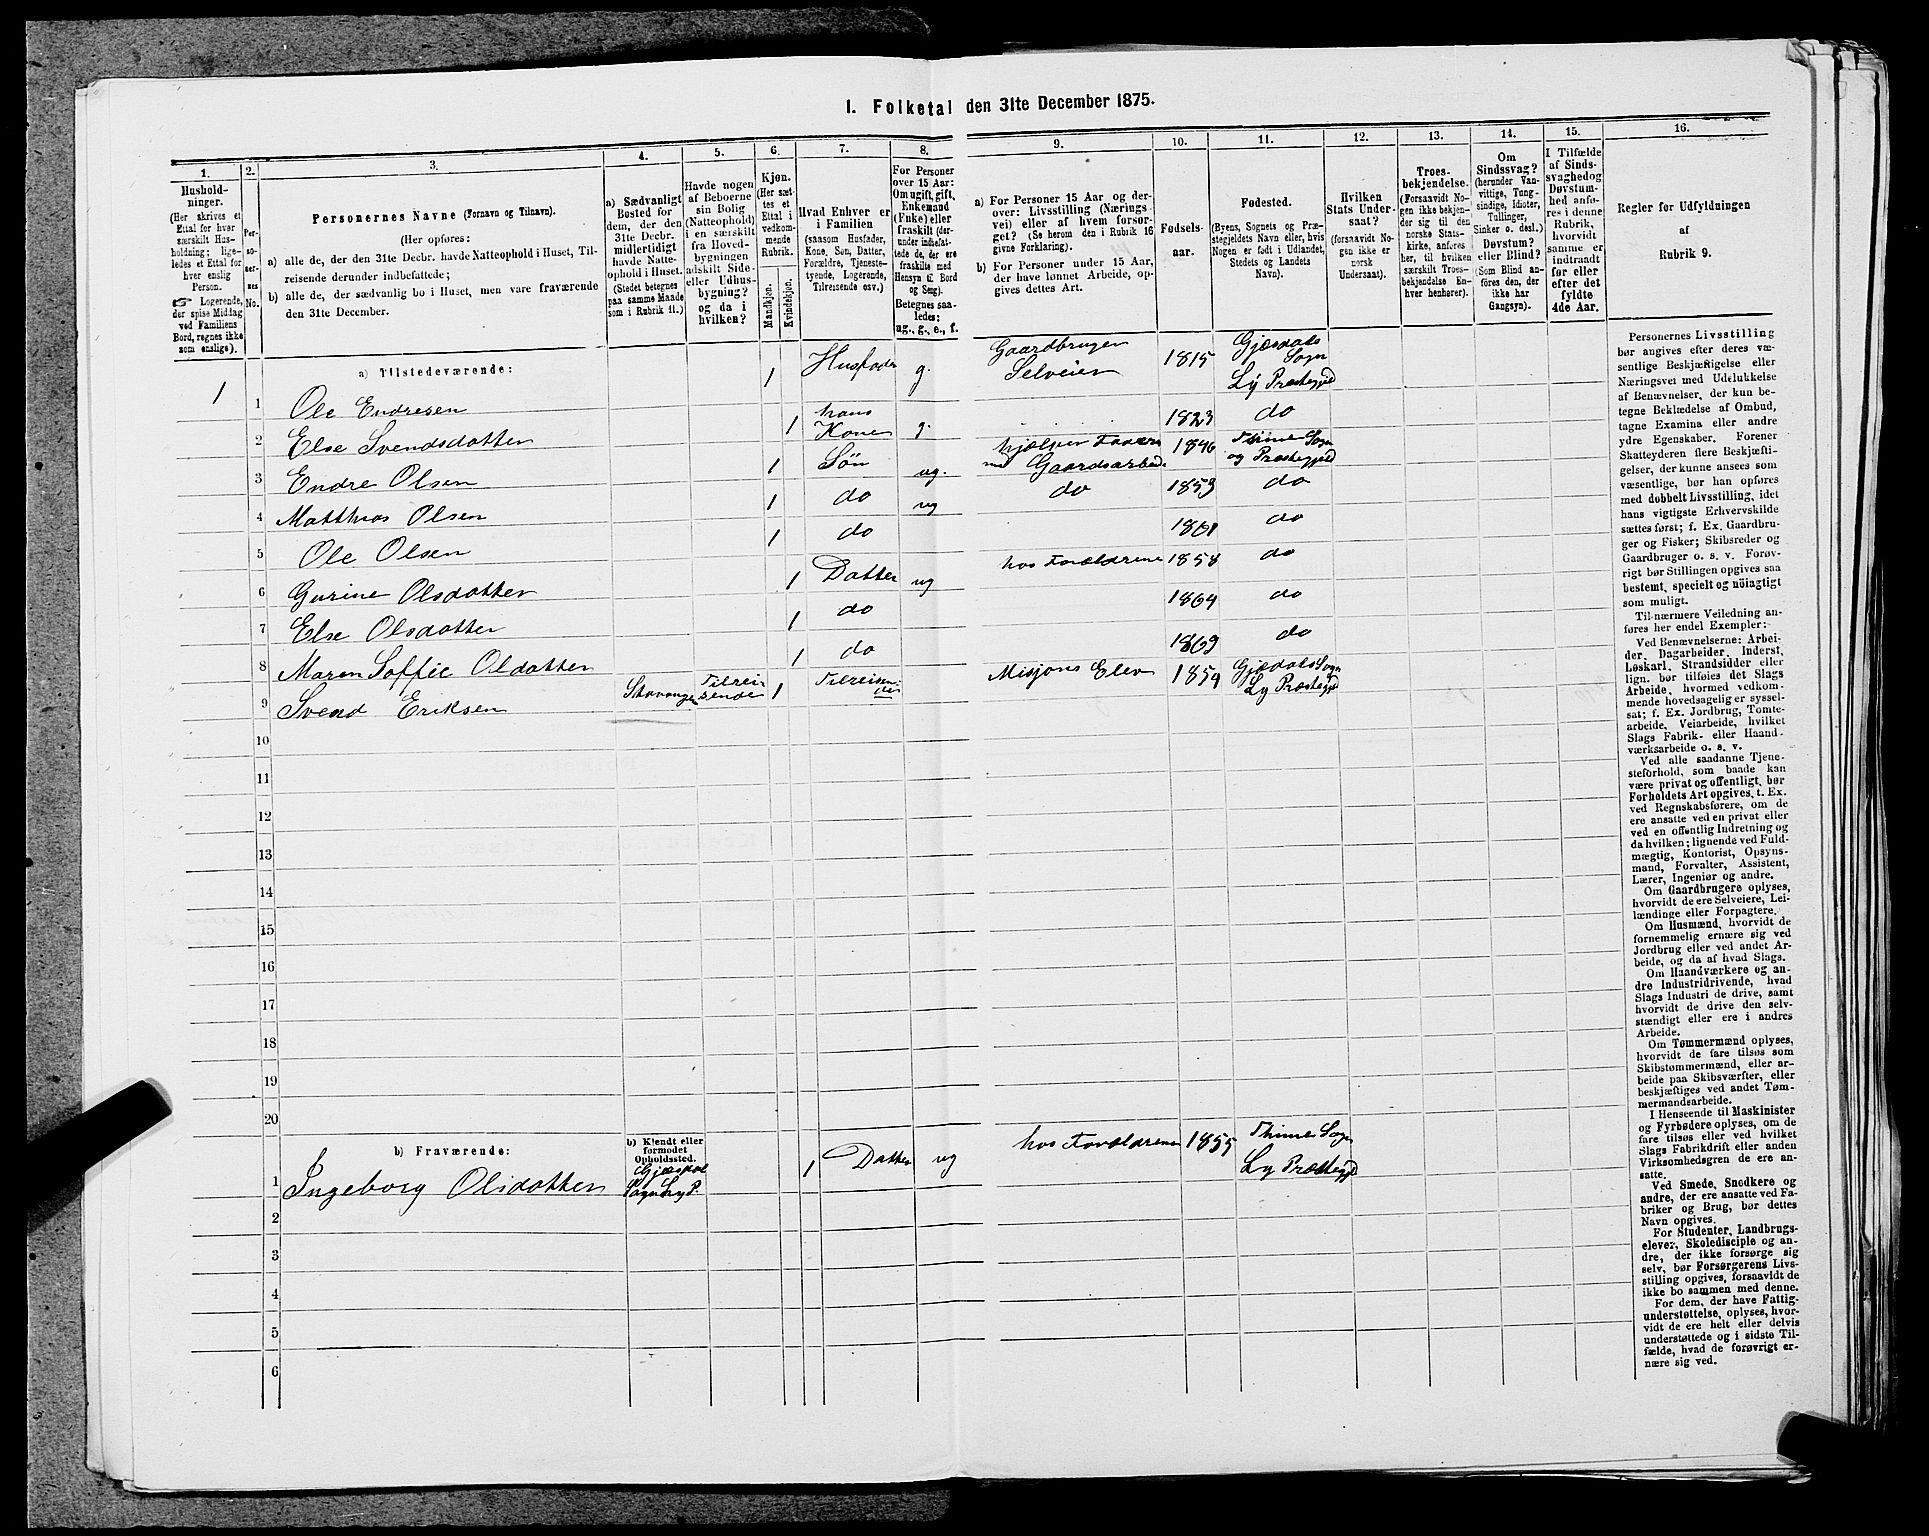 I. Folketal den 31te December 1875.
1. 2. 3. 4. 5. 6. 7. 8. 9. 10. 11. 12. 13. 14. 15. 16.
Hushold-
ninger.
(Her skrives et
Ettal for hver
særskilt Hus-
holdning; lige-
ledes et Ettal for
hver enslig
Person.
☞ Logerende,
der spise Middag
ved Familiens
Bord, regnes ikke
som enslige).
Per-
so-
ner-
nes
No.
Personernes Navne (Fornavn og Tilnavn).
(Her opføres:
a) alle de, der den 31te Decbr. havde Natteophold i Huset, Til-
reisende derunder indbefattede;
b) alle de, der sædvanlig bo i Huset, men vare fraværende
den 31te December.
a) Sædvanligt
Bosted for
dem, der den
31te Decbr.
midlertidigt
havde Natte-
ophold i Huset.
(Stedet betegnes
paa samme Maade
som i Rubrik 11.)
Havde nogen
af Beboerne
sin Bolig
(Natteophold)
i en særskilt
fra Hoved-
bygningen
adskilt Side-
eller Udhus-
bygning?
og da i
hvilken?
Kjøn.
(Her sæt-
tes et
Ettal i
vedkom-
mende
Rubrik.
Mandkjøn.
Kvindekjøn.
Hvad Enhver er
i Familien
(saasom Husfader,
Kone, Søn, Datter,
Forældre, Tjeneste-
tyende, Logerende,
Tilreisende osv.)
For Personer
over 15 Aar:
Om ugift, gift,
Enkemand
(Enke) eller
fraskilt (der-
under indbefat-
tede de, der ere
fraskilte med
Hensyn til Bord
og Seng).
Betegnes saa-
ledes:
ug., g., e., f.
a) For Personer 15 Aar og der-
over: Livsstilling (Nærings-
vei) eller af hvem forsør-
get? (Se herom den i Rubrik 16
givne Forklaring).
b) For Personer under 15 Aar,
der have lønnet Arbeide, op-
gives dettes Art.
Fødsels-
aar.
Fødested.
(Byens, Sognets og Præ-
stegjeldets Navn eller, hvis
Nogen er født i Udlandet,
Stedets og Landets
Navn).
Hvilken
Stats Under-
saat?
(forsaavidt No-
gen ikke er
norsk
Undersaat).
Troes-
bekjendelse.
(Forsaavidt No-
gen ikke bekjen-
der sig til den
norske Stats-
kirke, anføres
her, til hvilken
særskilt Troes-
bekjendelse En-
hver henhører).
Om
Sindssvag?
(herunder Van-
vittige, Tung-
sindige, Idioter,
Tullinger,
Sinker o. desl.)
Døvstum?
eller Blind?
(Som Blind an-
føres den, der
ikke har
Gangsyn).
I Tilfælde
af Sinds-
svaghed og
Døvstum-
hed anfø-
res i denne
Rubrik,
hvorvidt
samme er
indtraadt
før eller
efter det
fyldte
4de Aar.
Regler for Udfyldningen
af
Rubrik 9.
a) Tilstedeværende:
1 1 Ole Endresen 1 Husfader g. Gaardbruger Selveier 1815 Gjesdals Sogn Ly Præstegjed
2 Else Svendsdatter 1 hans Kone g. 1823 do
3 Endre Olsen 1 Søn ug. hjælper Faderen med Gaardsarbeide 1846 Thime Sogn og Præstegjed
4 Matthias Olsen 1 do ug do 1853 do
5 Ole Olsen 1 do 1861 do
6 Gurine Olsdatter 1 Datter ug hos Forældrene 1858 do
7 Else Olsdatter 1 do 1864 do
8 Maren Soffie Olsdatter 1 do 1869 do
9 Svend Eriksen Stavanger Tilreisende 1 Tilreisende Misjons Elev 1854 Gjesdals Sogn Ly Præstegjed
10
11
12
13
14
15
16
17
18
19
20
b) Fraværende:
b) Kjendt eller
formodet
Opholdssted.
1 Ingeborg Olsdatter Gjæsdal Sogn Ly P. 1 Datter ug hos Forældrene 1855 Thime Sogn Ly Præstegjed
2
3
4
5
6
Personernes Livsstilling
bør angives efter deres væ-
sentlige Beskjæftigelse eller
Næringsvei med Udelukkelse
af Benævnelser, der kun be-
tegne Beklædelse af Ombud,
tagne Examina eller andre
ydre Egenskaber. Forener
Skatteyderen flere Beskjæfti-
gelser, der kunne ansees som
væsentlige, bør han opføres
med dobbelt Livsstilling, idet
hans vigtigste Erhvervskilde
sættes først; f. Ex. Gaardbru-
ger og Fisker; Skibsreder og
Gaardbruger o. s. v. Forøv-
rigt bør Stillingen opgives saa
bestemt, specielt og nöiagtigt
som muligt.
Til nærmere Veiledning an-
føres her endel Exempler:
Ved Benævnelserne: Arbei-
der, Dagarbeider, Inderst,
Løskarl, Strandsidder eller
lign. bør tilføies det Slags
Arbeide, hvormed vedkom-
mende hovedsagelig er syssel-
sat; f. Ex. Jordbrug, Tomte-
arbeide, Veiarbeide, hvilket
Slags Fabrik- eller Haand-
værksarbeide o. s. v.
Ved alle saadanne Tjene-
steforhold, som baade kan
være privat og offentligt, bør
Forholdets Art opgives, t. Ex.
ved Regnskabsførere, om de
ere ansatte ved en privat eller
ved en offentlig Indretning og
da hvilken; lignende ved Fuld-
mægtig, Kontorist, Opsyns-
mand, Forvalter, Assistent,
Lærer, Ingeniør og andre.
Om Gaardbrugere oplyses,
hvorvidt de ere Selveiere, Lei-
lændinge eller Forpagtere.
Om Husmænd, hvorvidt de
fornemmelig ernære sig ved
Jordbrug eller ved andet Ar-
beide, og da af hvad Slags.
Om Haandværkere og an-
dre Industridrivende, hvad
Slags Industri de drive, samt
hvorvidt de drive den selv-
stændigt eller ere i andres
Arbeide.
Om Tømmermænd oplyses,
hvorvidt de fare tilsøs som
Skibstømmermænd, eller ar-
beide paa Skibsværfter, eller
beskjæftiges ved andet Tøm-
mermandsarbeide.
I Henseende til Maskinister
og Fyrbødere oplyses, om de
fare tilsøs eller ved hvilket
Slags Fabrikdrift eller anden
Virksomhedsgren de ere an-
satte.
Ved Smede, Snedkere og
andre, der ere ansatte ved Fa-
briker og Brug, bør dettes
Navn opgives.
For Studenter, Landbrugs-
elever, Skoledisciple og an-
dre, der ikke forsørge sig
selv, bør Forsørgerens Livs-
stilling opgives, forsaavidt de
ikke bo sammen med denne.
For dem, der have Fattig-
understøttelse, oplyses, hvor-
vidt de ere helt eller delvis
understøttede og i sidste Til-
fælde, hvad de forøvrigt er-
nære sig ved.